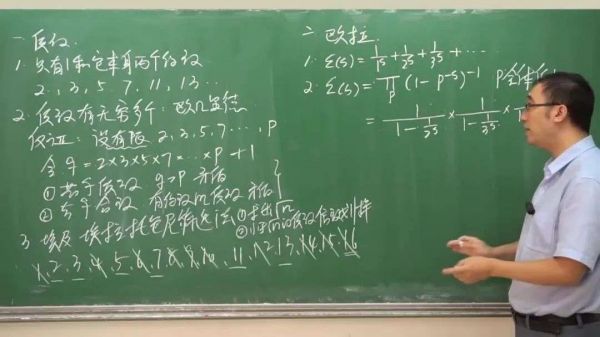 一. 质数
1. 只有1和它本身两个约数
2, 3, 5, 7, 11, 13 …
2. 质数有无穷多个: 欧几里得
反证: 设有限 2, 3, 5, 7 …, p
令 q = 2×3×5×7×…×p + 1
① 若 q 质数 q>p 矛盾
② 若 q 合数 有 质数 矛盾
3. 埃及 埃拉托色尼筛选法 ① √n
② √n 的质数 倍数划掉
1, 2, 3, 4, 5, 6, 7, 8, 9, 10, 11, 12, 13, 14, 15, 16
二. 欧拉
1. ξ(s) = 1/1ˢ + 1/2ˢ + 1/3ˢ + …
2. ξ(s) = ∏ₚ (1 - p⁻ˢ)⁻¹ p 全体
= 1/(1 - 1/2ˢ) × 1/(1 - 1/3ˢ) ×